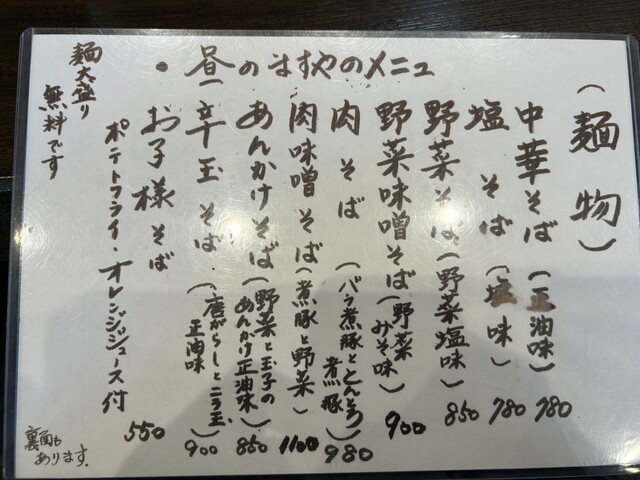 ・昼のますやのメニュー
(麺物)
中華そば(正油味) 780
塩そば(塩味) 780
野菜そば(野菜塩味) 850
野菜味噌そば(野菜みそ味) 900
肉そば(バラ煮豚ととんとろ煮豚) 980
肉味噌そば(煮豚と野菜) 1100
あんかけそば(野菜と玉子のあんかけ正油味) 850
辛玉そば(唐がらしとニラ玉、正油味) 900
お子様そば
ポテトフライ・オレンジジュース付 550
麺大盛り
無料です
裏面も
あります。